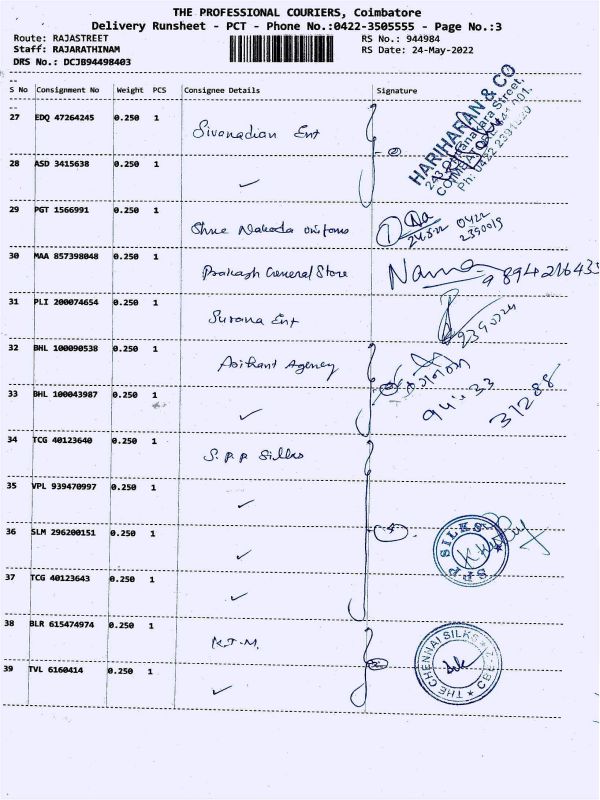 THE PROFESSIONAL COURIERS, Coimbatore
Delivery Runsheet - PCT - Phone No.:0422-3505555 - Page No.:3
Route: RAJASTREET RS No.: 944984
Staff: RAJARATHINAM RS Date: 24-May-2022
DRS No.: DCJB94498403
S No Consignment No Weight PCS Consignee Details Signature
27 EDQ 47264245 0.250 1 Sivanadian Ent
HARIHARAN & CO
28 ASD 3415638 0.250 1 ✓
29 PGT 1566991 0.250 1 Shree Nakoda Uniforms 24.5.22 0422
2390019
30 MAA 857398048 0.250 1 Prakash General Store
31 PLI 200074654 0.250 1 Surana Ent 2390724
32 BHL 100090538 0.250 1 Arihant Agency
33 BHL 100043987 0.250 1 ✓ 944 33 31288
34 TCG 40123640 0.250 1 S.P.P Silks
35 VPL 939470997 0.250 1 ✓
36 SLM 296200151 0.250 1 ✓ 4 SPP SILKS
37 TCG 40123643 0.250 1 ✓
38 BLR 615474974 0.250 1 K.T.M.
39 TVL 6160414 0.250 1 ✓ 2 THE CHENNAI SILKS CBE